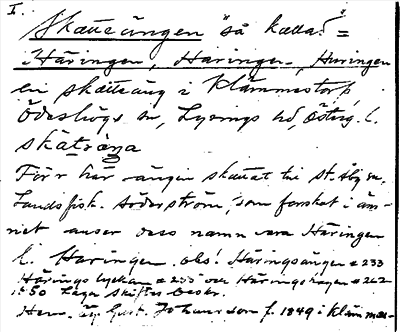 I.
Skatteängen "så kallad" =
Häringen, Haringen, Huringen
en skatteäng i Klämmestorp,
Ödeshögs sn, Lysings hd, Östrg. l.
skat̠räŋa
Förr har ängen skattat till St. Åby sn.
Landsfisk. Söderström, som forskat i äm-
net anser dess namn vara Häringen
l. Haringen. obs! Häringsängen # 233
Härings lyckan # 235 och Häringshagen # 242
i 50 Laga skiftes beskr.
Hem. äg. Gust. Johansson f. 1849 i Klämmes-